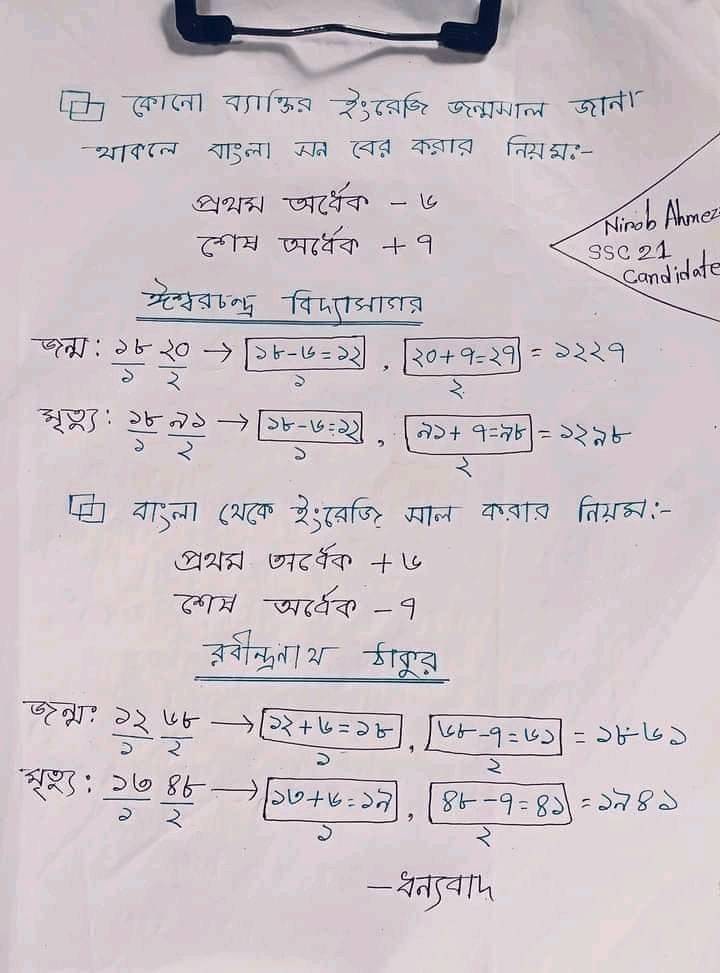 কোনো ব্যাক্তির ইংরেজি জন্মসাল জানা
থাকলে বাংলা সন বের করার নিয়মঃ-
প্রথম অর্ধেক - ৬
শেষ অর্ধেক + ৭
Nirob Ahmez
SSC 21
Candidate
ঈশ্বরচন্দ্র বিদ্যাসাগর
জন্ম : ১৮ ২০ → ১৮-৬=১২ , ২০+৭=২৭ = ১২২৭
১ ২ ১ ২
মৃত্যু : ১৮ ৯১ → ১৮-৬=১২ , ৯১+৭=৯৮ = ১২৯৮
১ ২ ১ ২
বাংলা থেকে ইংরেজি সাল করার নিয়ম :-
প্রথম অর্ধেক + ৬
শেষ অর্ধেক - ৭
রবীন্দ্রনাথ ঠাকুর
জন্ম: ১২ ৬৮ → ১২+৬=১৮ , ৬৮-৭=৬১ = ১৮৬১
১ ২ ১ ২
মৃত্যু : ১৩ ৪৮ → ১৩+৬=১৯ , ৪৮-৭=৪১ = ১৯৪১
১ ২ ১ ২
- ধন্যবাদ